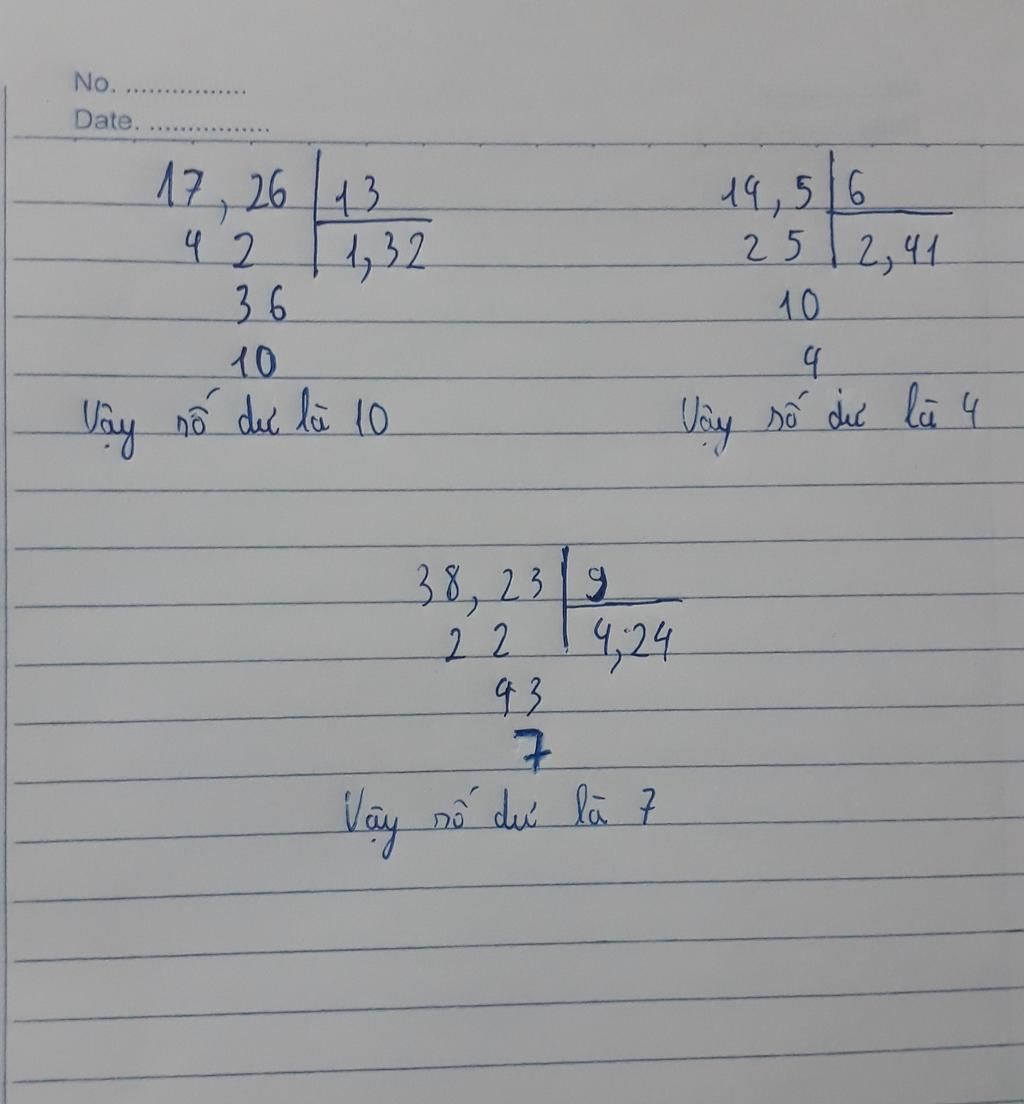 No. ................
Date. ................
17,26 13
4 2 1,32
36
10
Vậy số dư là 10
14,5 6
2 5 2,41
10
4
Vậy số dư là 4
38,23 9
2 2 4,24
43
7
Vậy số dư là 7